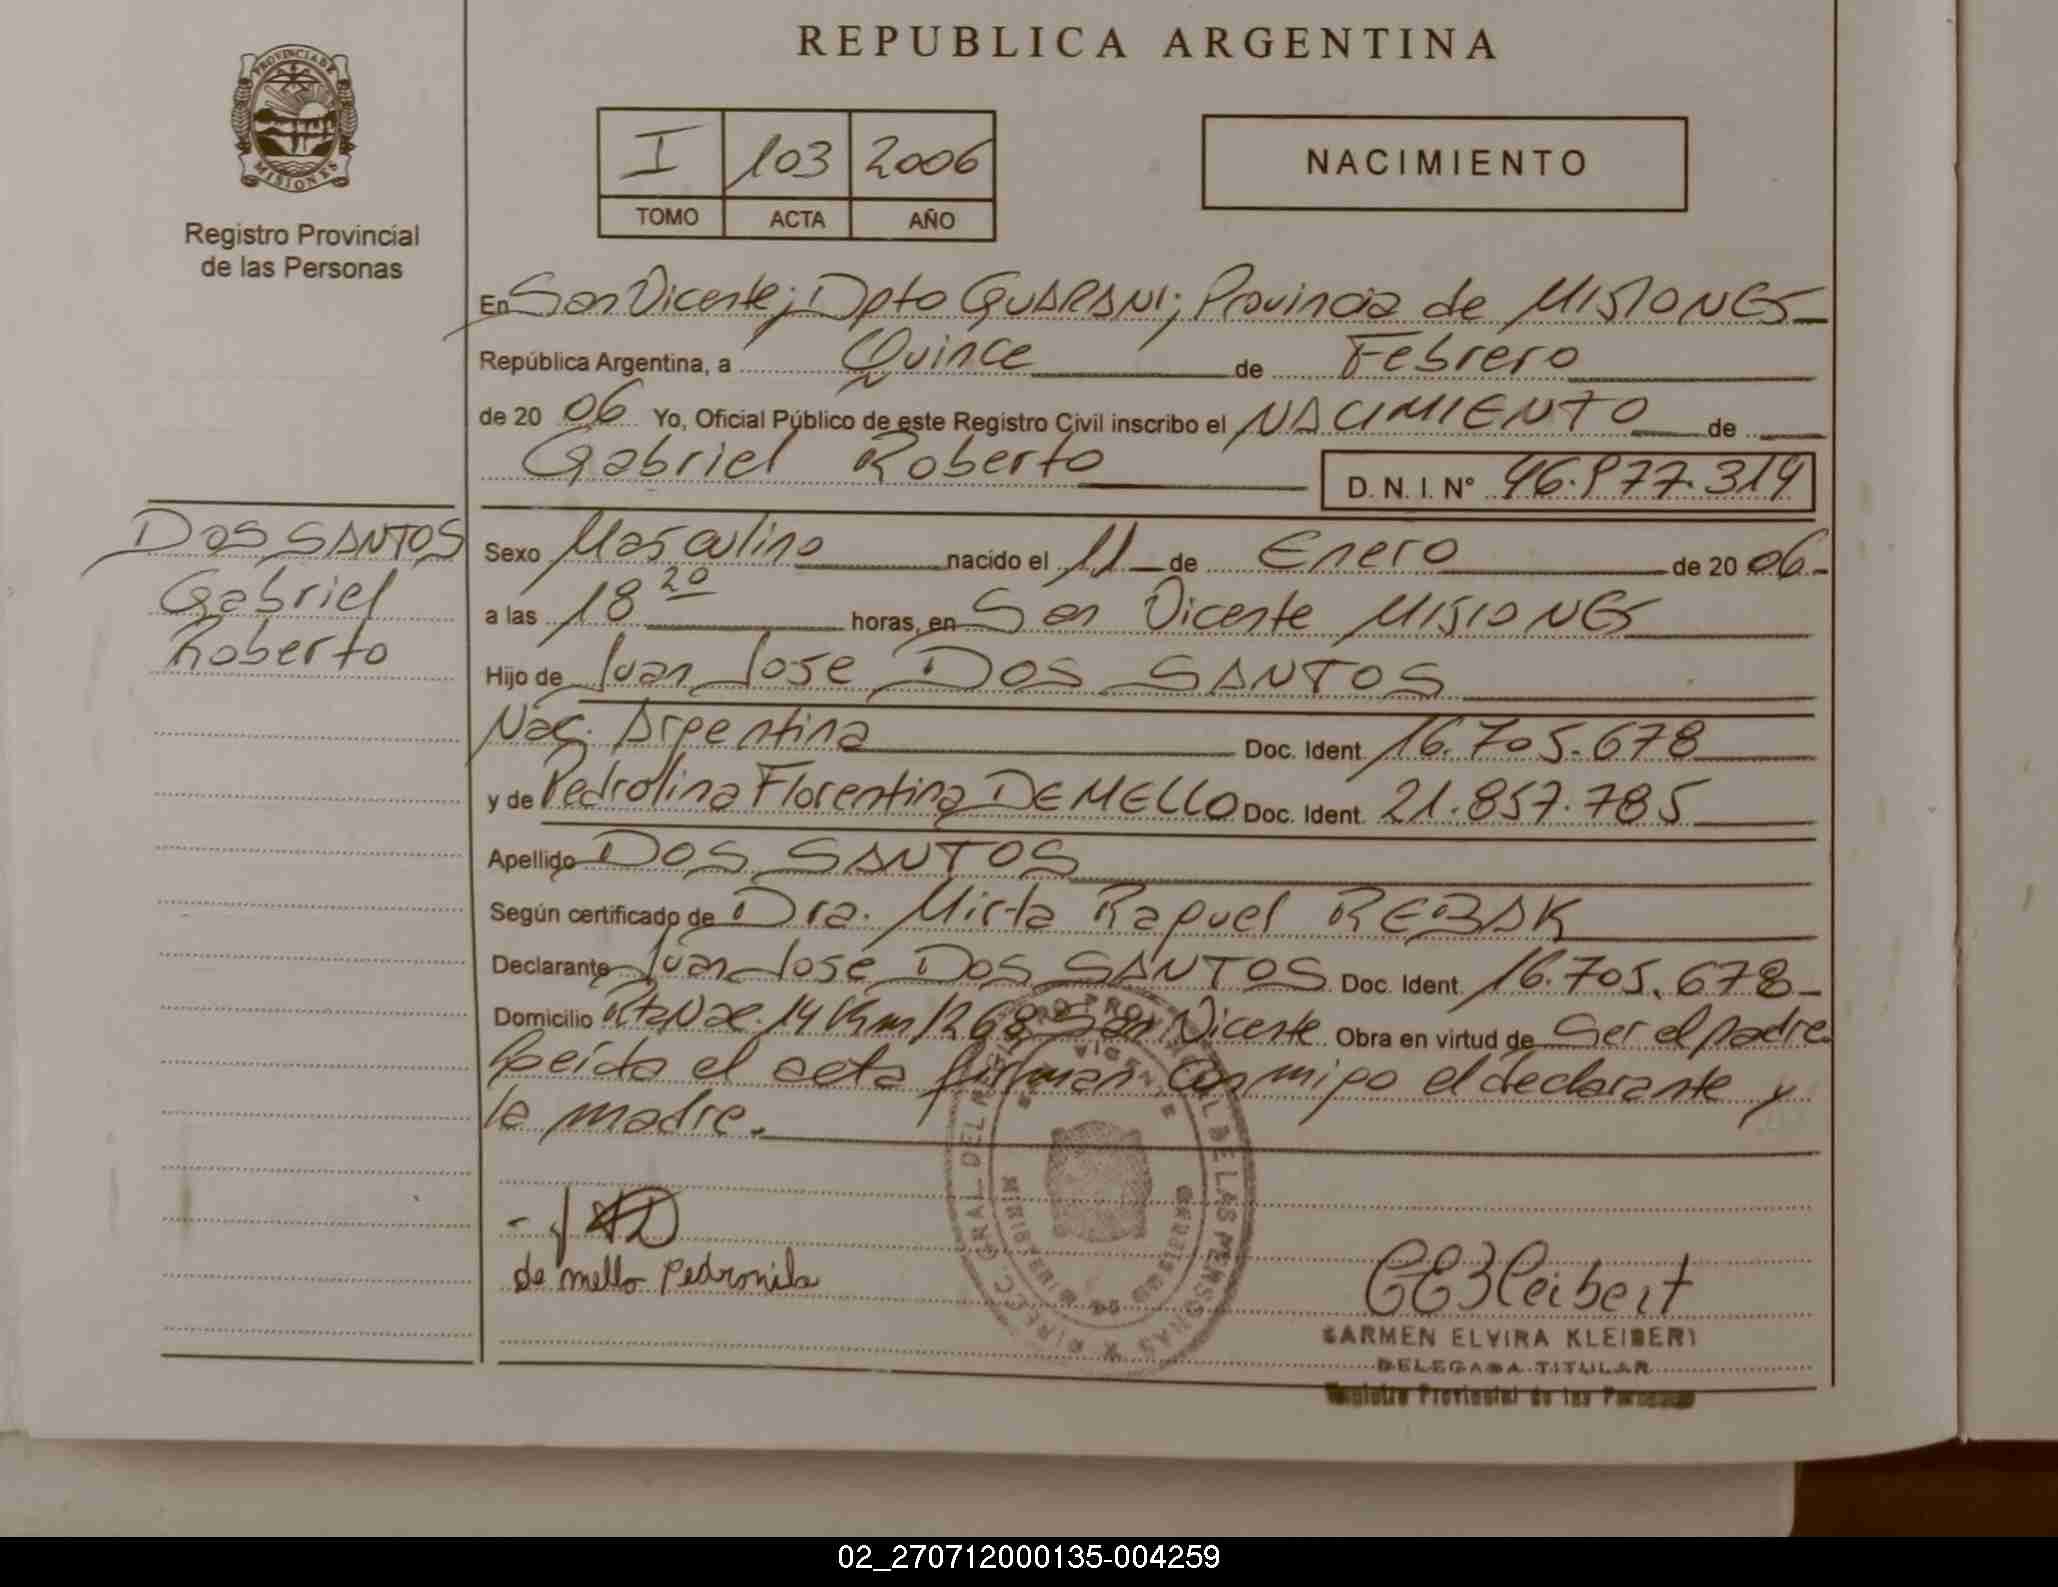 REPUBLICA ARGENTINA
PROVINCIA DE
MISIONES
Registro Provincial
de las Personas
I 103 2006
TOMO ACTA AÑO
NACIMIENTO
En San Vicente; Dpto GUARANI; Provincia de MISIONES
República Argentina, a Quince de Febrero
de 20 06 Yo, Oficial Público de este Registro Civil inscribo el NACIMIENTO de
Gabriel Roberto D. N. I. N° 46.977.319
DOS SANTOS
Gabriel
Roberto
Sexo Masculino nacido el 11 de Enero de 20 06
a las 18 20 horas, en San Vicente MISIONES
Hijo de Juan Jose DOS SANTOS
Nac. Argentina Doc. Ident. 16.705.678
y de Pedrolina Florentina DE MELLO Doc. Ident. 21.857.785
Apellido DOS SANTOS
Según certificado de Dra. Mirta Raquel REBAK
Declarante Juan Jose DOS SANTOS Doc. Ident. 16.705.678
Domicilio Rta Nac. 14 Km 1268 San Vicente Obra en virtud de Ser el padre
Leída el acta firman conmigo el declarante y
la madre.
de mello Pedronila
DIREC. GRAL. DEL REGISTRO PROVINCIAL DE LAS PERSONAS
SAN VICENTE
MINISTERIO DE GOBIERNO
CEKleibert
CARMEN ELVIRA KLEIBERT
DELEGADA TITULAR
Registro Provincial de las Personas
02_270712000135-004259